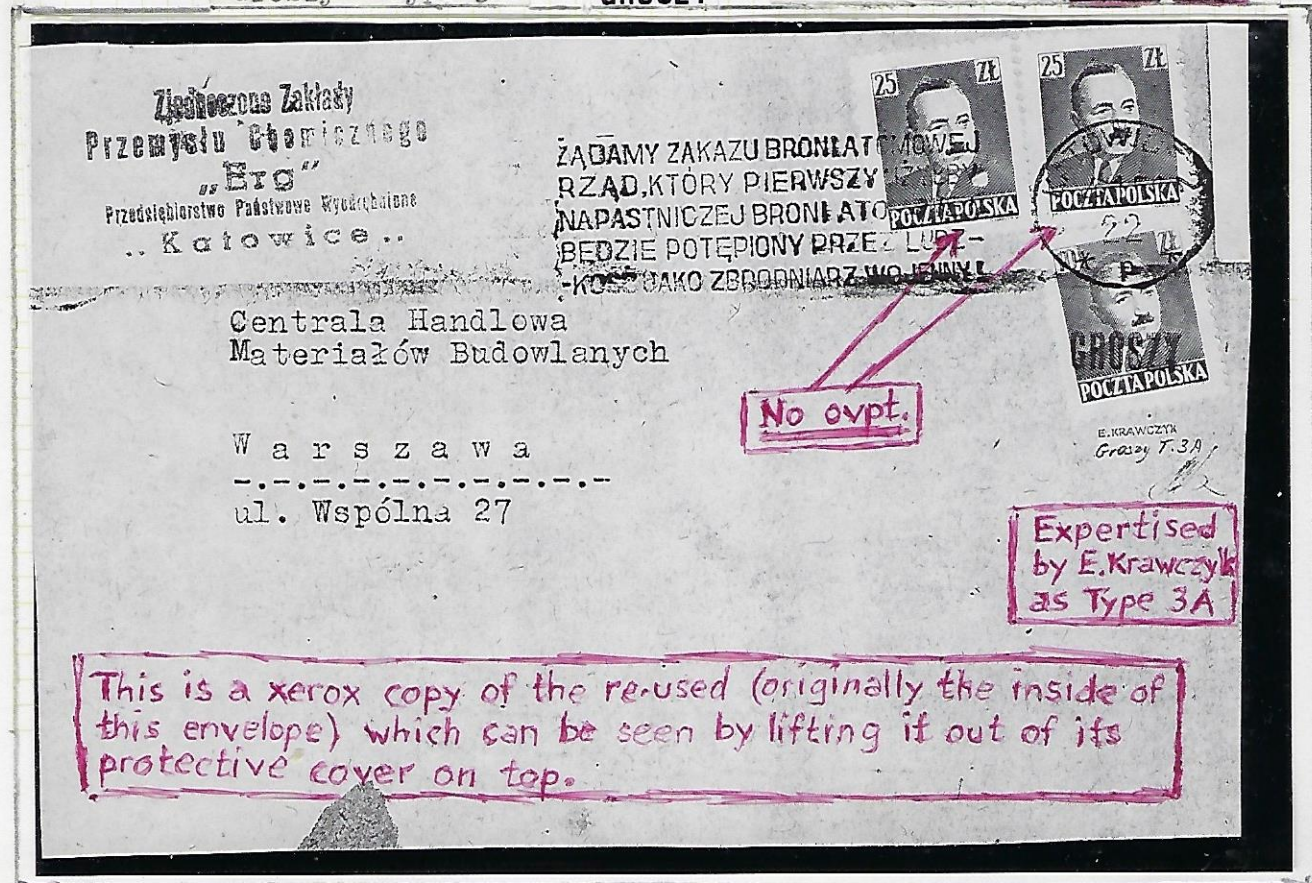 GROSZY
Zjednoczone Zakłady
Przemysłu Chemicznego
„Erg”
Przedsiębiorstwo Państwowe Wyodrębnione
..Katowice..
ŻĄDAMY ZAKAZU BRONI ATOMOWEJ
RZĄD, KTÓRY PIERWSZY UŻYŁBY
NAPASTNICZEJ BRONI ATO
BĘDZIE POTĘPIONY PRZEZ LUDZ-
-KOŚĆ JAKO ZBRODNIARZ WOJENNY!
25 ZŁ
POCZTA POLSKA
25 ZŁ
POCZTA POLSKA
TOWIC
22
* P *
ZŁ
GROSZY
POCZTA POLSKA
Centrala Handlowa
Materiałów Budowlanych
Warszawa
-.-.-.-.-.-.-.-.-.-
ul. Wspólna 27
No ovpt.
E. KRAWCZYK
Groszy T.3A
Expertised
by E. Krawczyk
as Type 3A
This is a xerox copy of the re-used (originally the inside of
this envelope) which can be seen by lifting it out of its
protective cover on top.